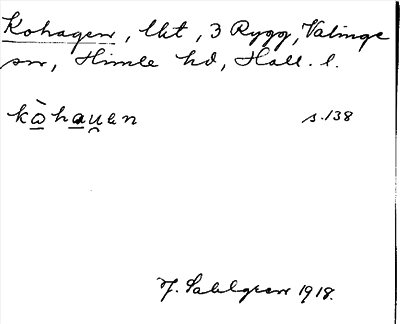 Kohagen, lkt, 3 Rygg, Valinge
sn, Himle hd, Hall. l.
kòhau̯en s.138
J. Sahlgren 1918.